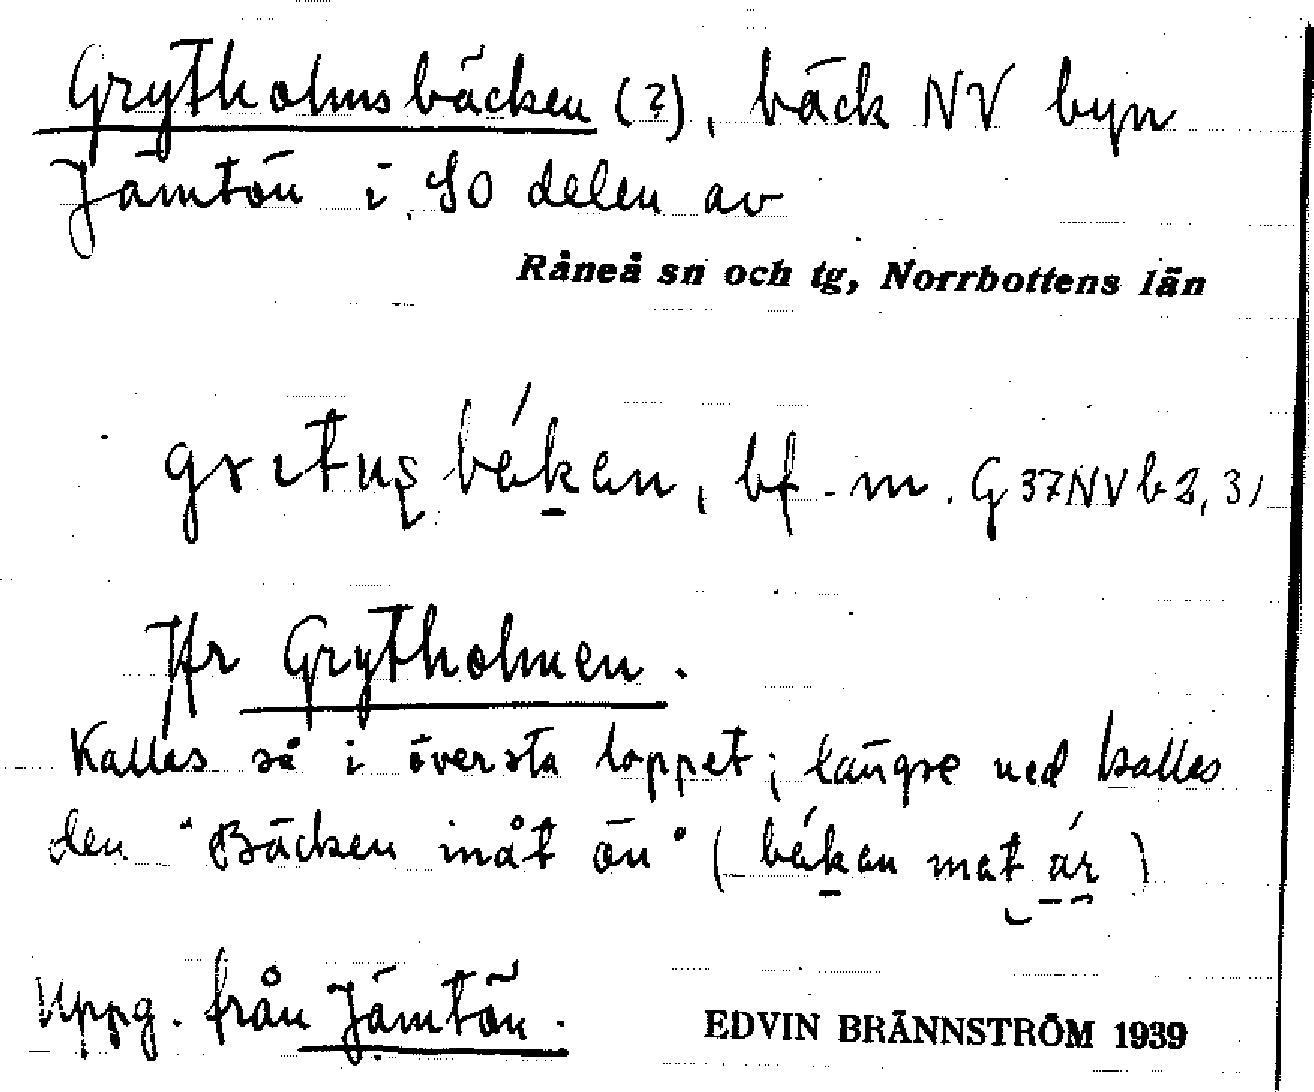 Grytholmsbäcken (?), bäck NV byn
Jämtön i SO delen av
Råneå sn och tg, Norrbottens län
bf. m. G 37 NV b 2, 3,
Jfr Grytholmen.
Kallas så i översta loppet; längre ned kallas
den "Bäcken inåt ön" (
Uppg. från Jämtön.
EDVIN BRÄNNSTRÖM 1939